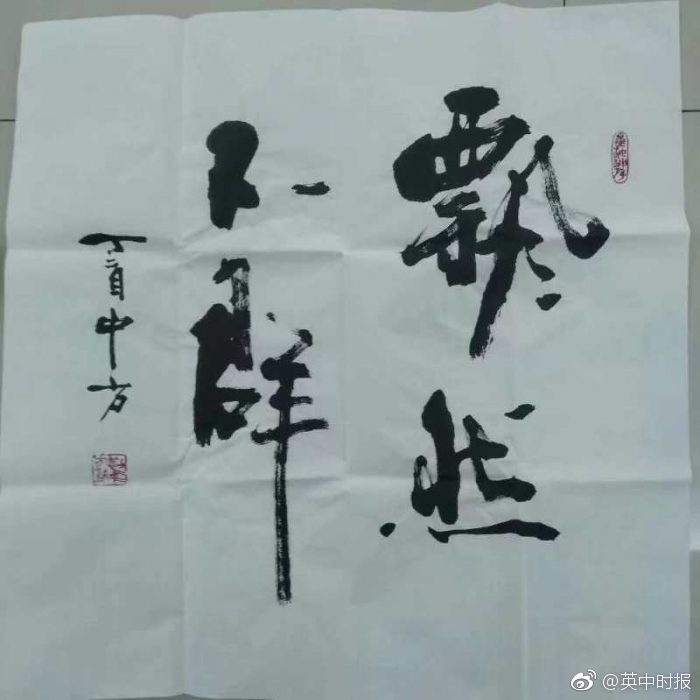 飘然
不群
丁酉中方
@英中时报